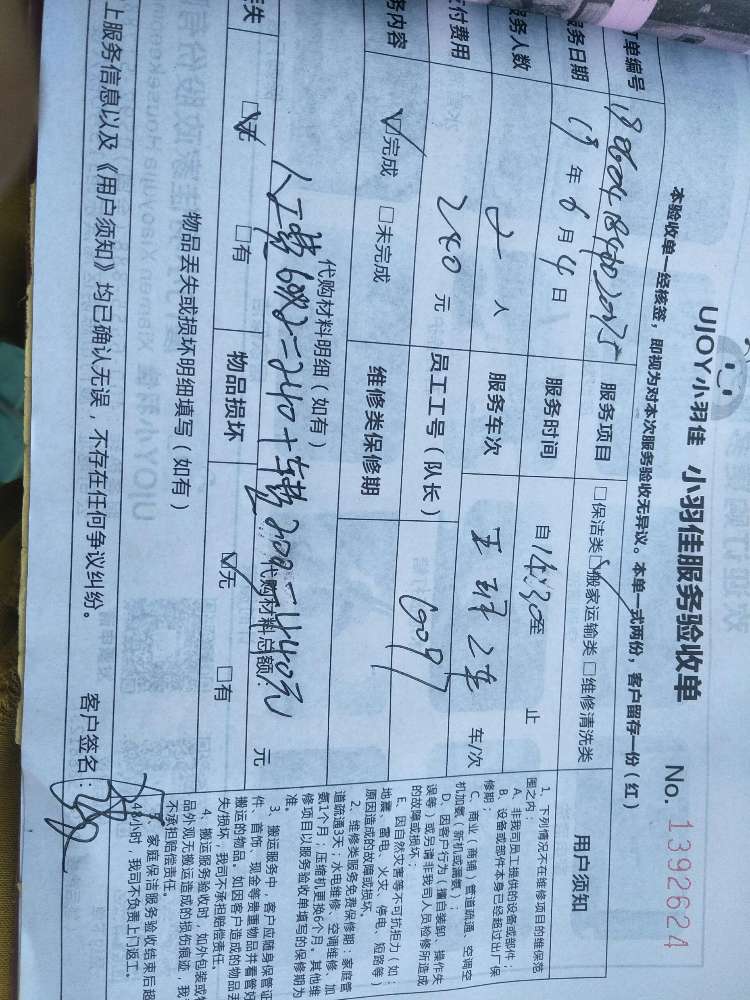 UJOY小羽佳 小羽佳服务验收单 No. 1392624
本验收单一经核签，即视为对本次服务验收无异议。本单一式两份，客户留存一份（红）
单编号 服务项目 □保洁类 ☑搬家运输类 □维修清洗类
务日期 19年6月4日 服务时间 自14:30至 止
服务人数 2人 服务车次 车/次
付费用 240元 员工工号（队长） 6097
务内容 ☑完成 □未完成 维修类保修期
代购材料明细（如有）
代购材料总额： 元
人工费 60×2×2=240+车费200=440元
丢失 ☑无 □有 物品损坏 ☑无 □有
物品丢失或损坏明细填写（如有）
上服务信息以及《用户须知》均已确认无误，不存在任何争议纠纷。 客户签名：
用户须知
1、下列情况不在维修项目的维保范
围之内：
A、非我司员工提供的设备或部件；
B、设备或部件本身已经超过出厂保
修期；
C、商业（商铺）管道疏通、空调空
机加氨（新机或漏氨）；
D、因客户行为（擅自装卸、操作失
误等）或另请非我司人员检修所造成
的故障或损坏；
E、因自然灾害等不可抗拒力（如：
地震、雷电、火灾、停电、短路等）
原因造成的故障或损坏。
2、维修类服务免费保修期：家庭管
道疏通3天；水电维修、空调维修、加
氨1个月；压缩机更换6个月。其他维
修项目以服务验收单填写的保修期为
准。
3、搬运服务中，客户应随身保管证
件、首饰、现金等贵重物品并看管好
搬运的物品。如因客户造成的物品丢
失/损坏，我司不承担赔偿责任。
4、搬运服务验收时，如外包装或物
品外观无搬运造成的损伤痕迹，我
不承担赔偿责任。
5、家庭保洁服务验收结束后超
48小时，我司不负责上门返工。